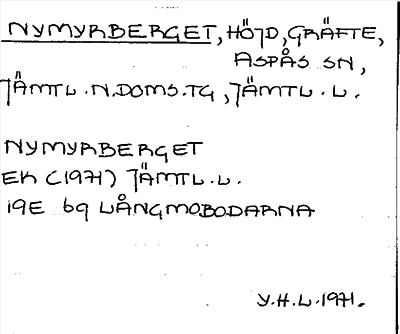 NYMYRBERGET, HÖJD, GRÄFTE,
ASPÅS SN,
JÄMTL.N.DOMS.TG, JÄMTL.L.
NYMYRBERGET
EK (1971) JÄMTL.L.
19E 6g LÅNGMOBODARNA
Y.H.L.1971.